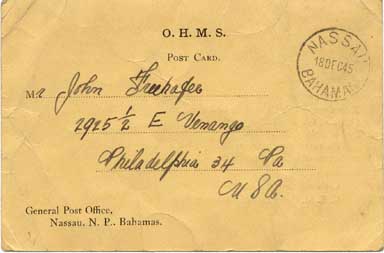 O. H. M. S.
POST CARD.
NASSAU
18 DEC 45
BAHAMAS
Mr John Freehafer
2925 ½ E Venango
Philadelphia 34 Pa
USA.
General Post Office,
Nassau, N. P., Bahamas.